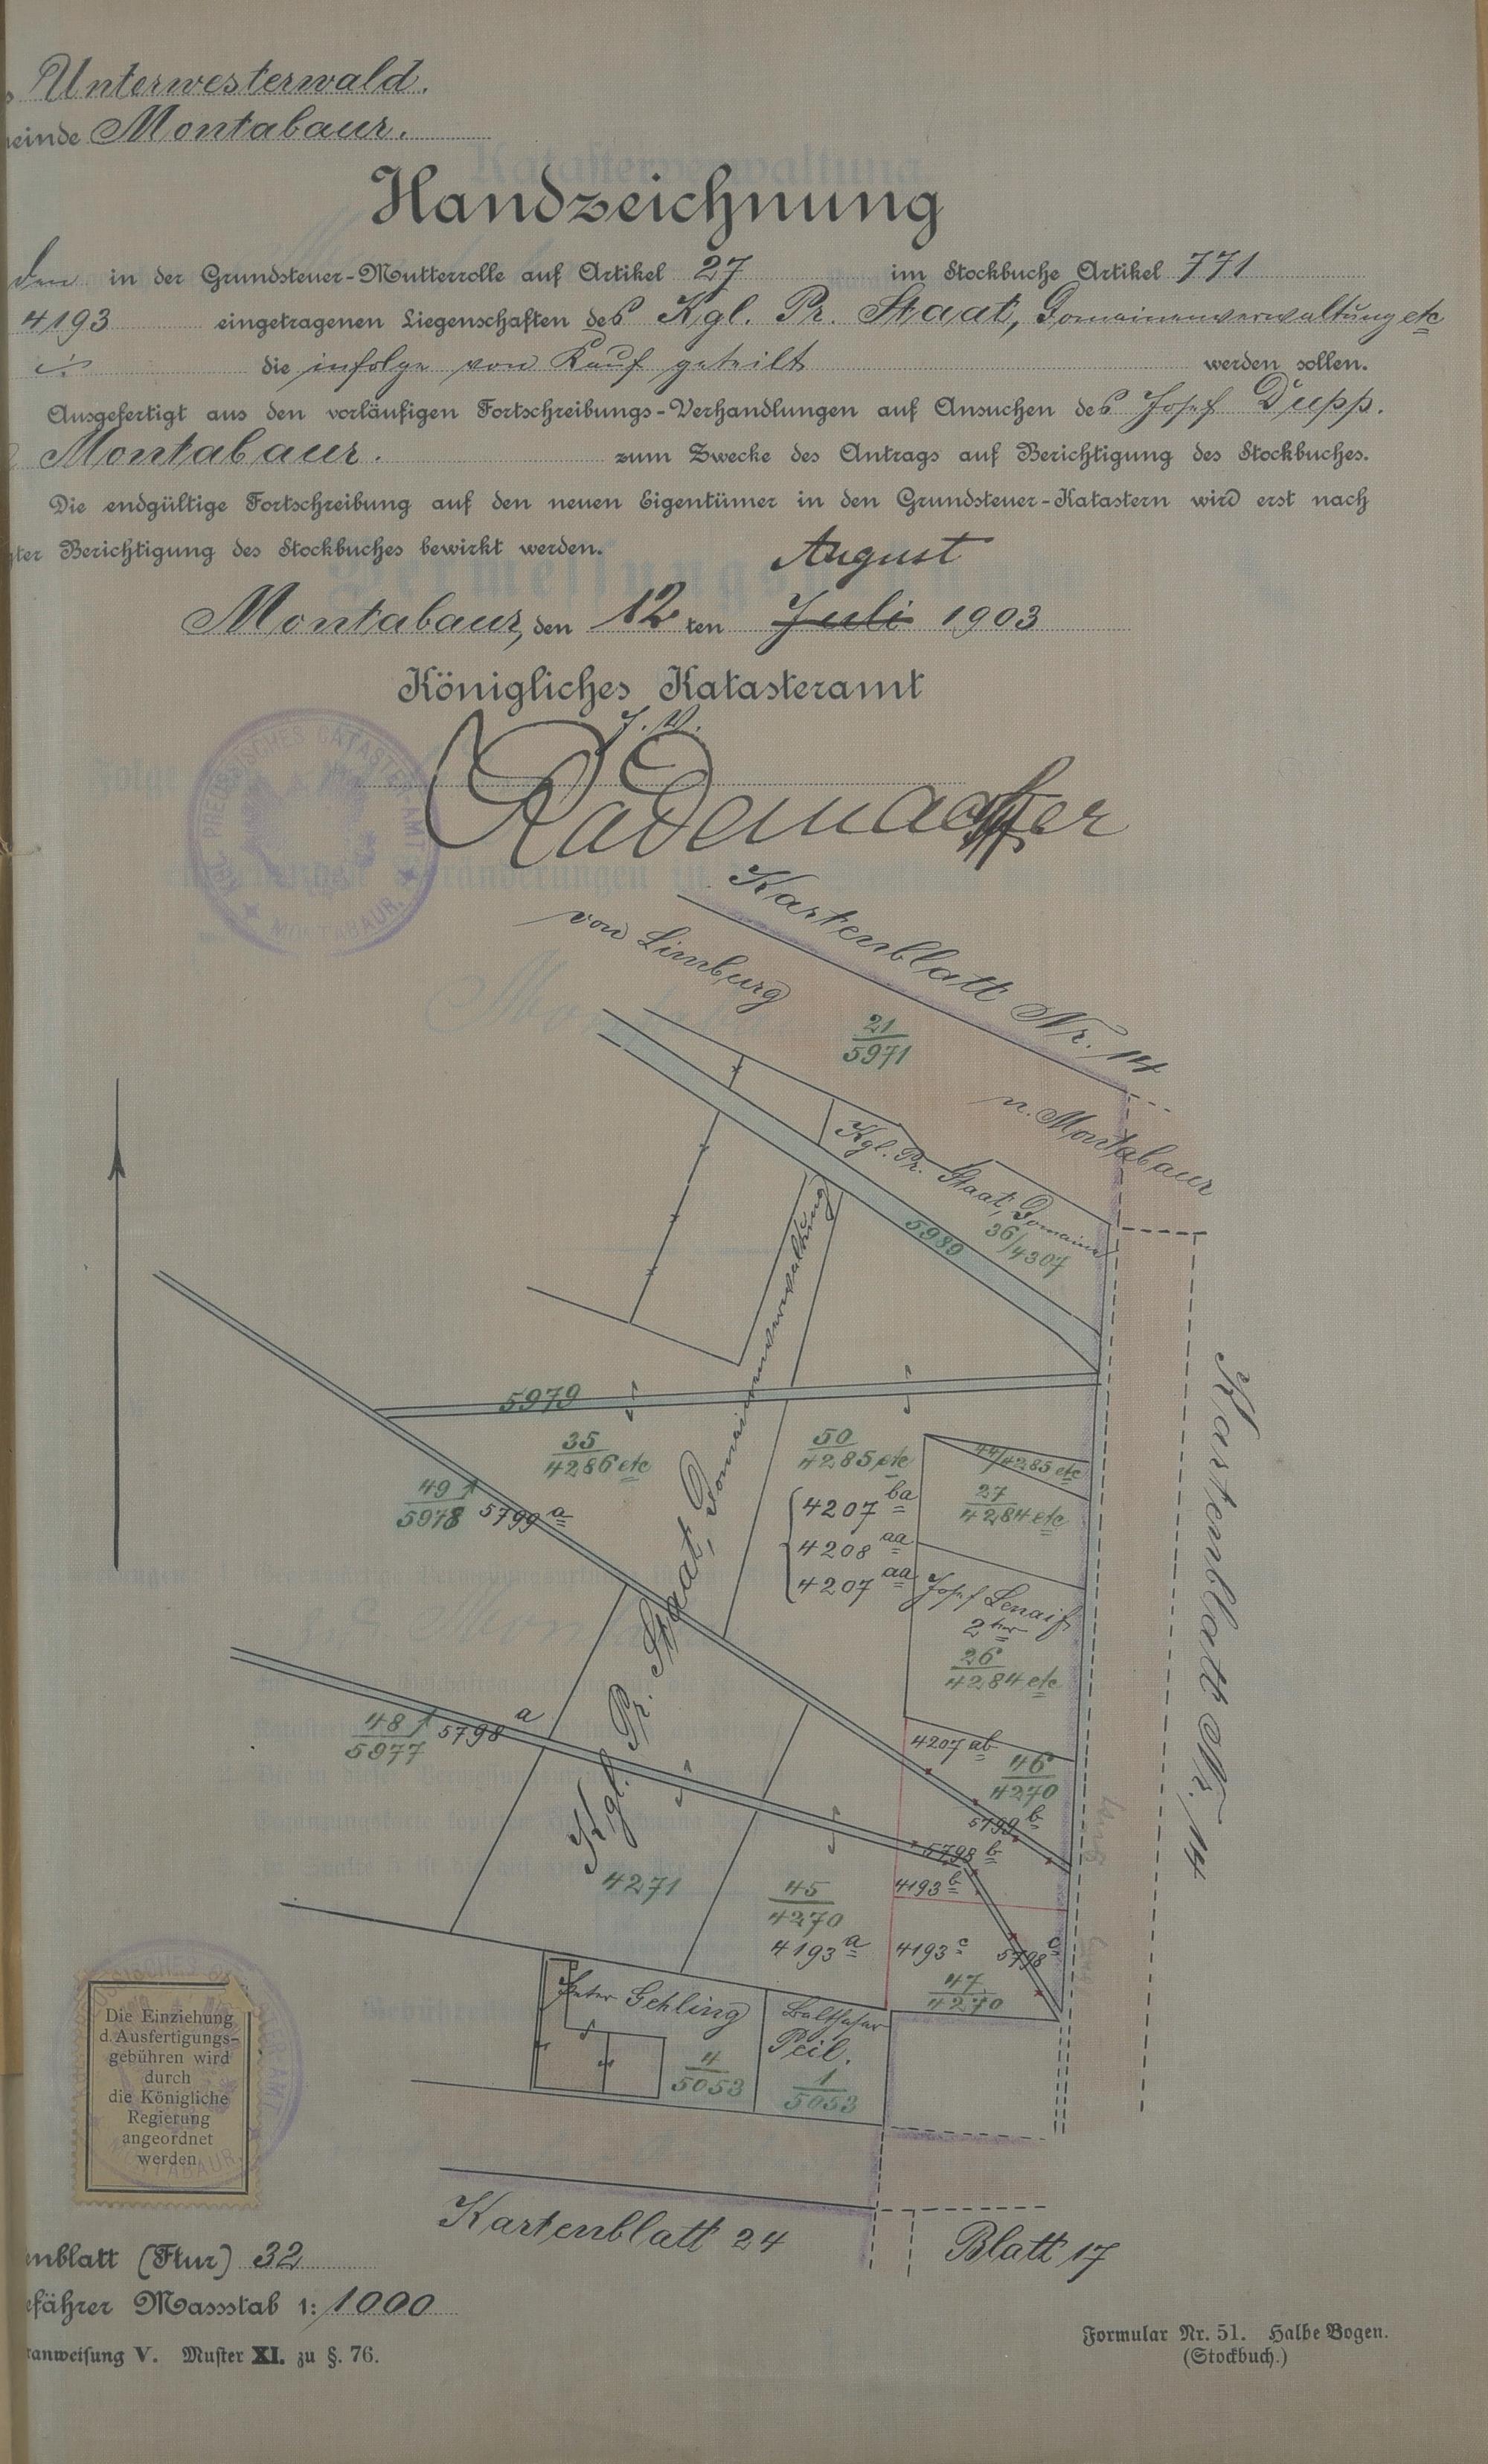 Unterwesterwald.
einde Montabaur.
Handzeichnung
den in der Grundsteuer-Mutterrolle auf Artikel 27 im Stockbuche Artikel 771
4193 eingetragenen Liegenschaften des Kgl. Pr. Staat, Domainenverwaltung etc
die infolge von Kauf geteilt werden sollen.
Ausgefertigt aus den vorläufigen Fortschreibungs-Verhandlungen auf Ansuchen des Josef Dupp.
Montabaur. zum Zwecke des Antrags auf Berichtigung des Stockbuches.
Die endgültige Fortschreibung auf den neuen Eigentümer in den Grundsteuer-Katastern wird erst nach
gter Berichtigung des Stockbuches bewirkt werden.
August
Montabaur, den 12 ten Juli 1903
Königliches Katasteramt
J. V.
Rademacher
KGL. PREUSSISCHES CATASTER-AMT MONTABAUR.
Kartenblatt Nr. 14
von Limburg
21/5971
n. Montabaur
Kgl. Pr. Staat, Domainen
36/4307
5989
Kgl. Pr. Staat, Domainenverwaltung
5979
35/4286 etc
50/4285 etc
44/4285 etc
4207 ba
4208 aa
4207 aa
27/4284 etc
49/5978
5799 a
Josef
2ter
26/4284 etc
Kartenblatt Nr. 14
48/5977
5798 a
4207 ab
46/4270
5799 b
5798 b
4193 b
4271
45/4270
4193 a
4193 c
5798 c
47/4270
Peter Gehling
Balthasar
Peil.
4/5053
1/5053
Die Einziehung
d. Ausfertigungs-
gebühren wird
durch
die Königliche
Regierung
angeordnet
werden
Kartenblatt 24
Blatt 17
enblatt (Flur) 32
efährer Massstab 1: 1000
ranweisung V. Muster XI. zu §. 76.
Formular Nr. 51. Halbe Bogen.
(Stockbuch.)